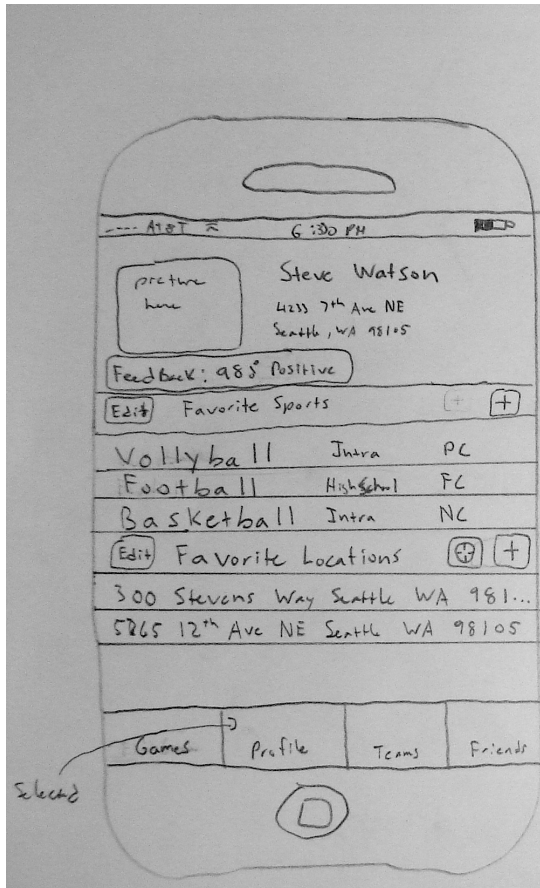 AT&T 6:30 PM
picture here
Steve Watson
4233 7th Ave NE
Seattle, WA 98105
Feedback: 985 Positive
Edit Favorite Sports + +
Vollyball Intra PC
Football HighSchool FC
Basketball Intra NC
Edit Favorite Locations +
300 Stevens Way Seattle WA 981...
5265 12th Ave NE Seattle WA 98105
Games Profile Teams Friends
Selected